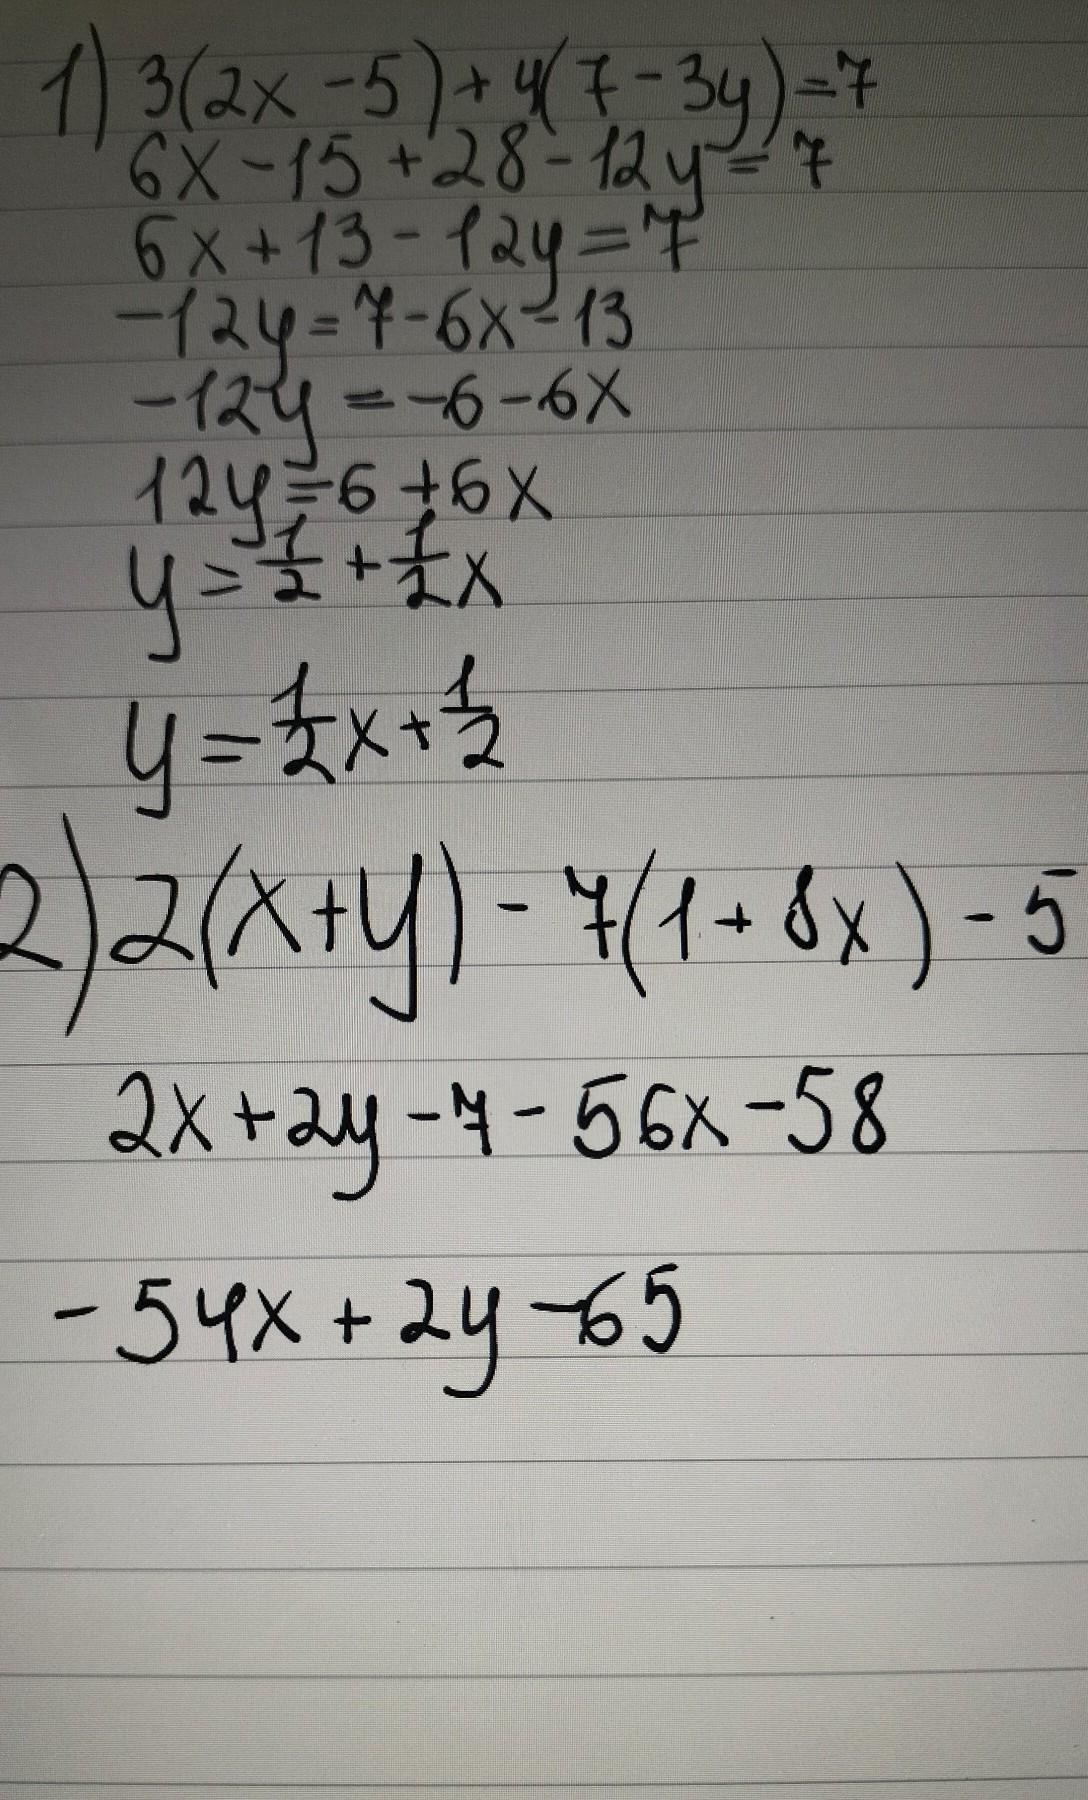 1) 3(2x - 5) + 4(7 - 3y) = 7
6x - 15 + 28 - 12y = 7
6x + 13 - 12y = 7
-12y = 7 - 6x - 13
-12y = -6 - 6x
12y = 6 + 6x
y = 1/2 + 1/2x
y = 1/2x + 1/2
2) 2(x + y) - 7(1 + 8x) - 5
2x + 2y - 7 - 56x - 58
- 54x + 2y - 65